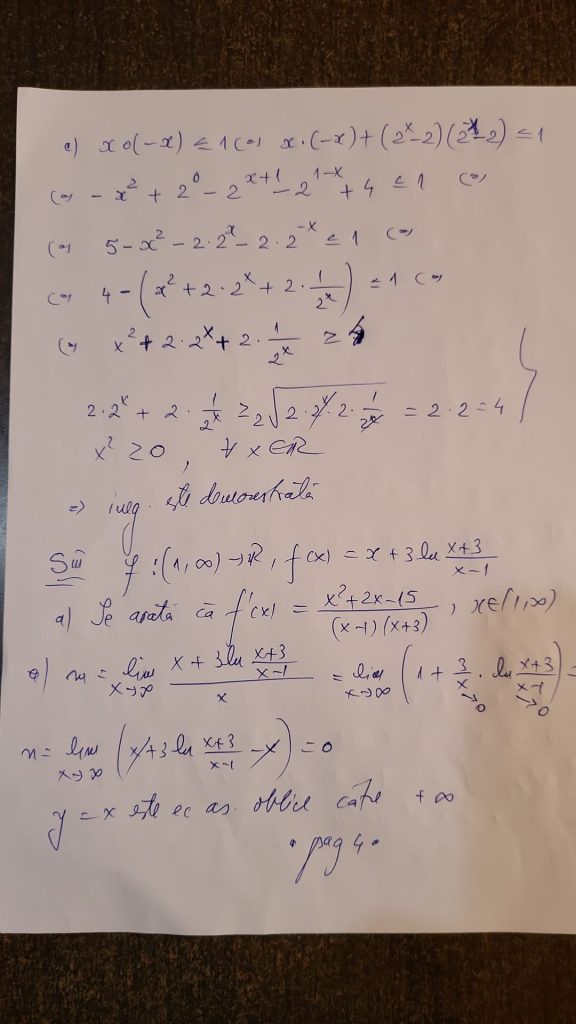 c) x∘(-x) ≤ 1 (=) x·(-x) + (2^x-2)(2^-x-2) ≤ 1
(=) -x² + 2⁰ - 2^(x+1) - 2^(1-x) + 4 ≤ 1 (=)
(=) 5 - x² - 2·2^x - 2·2^-x ≤ 1 (=)
(=) 4 - (x² + 2·2^x + 2·1/2^x) ≤ 1 (=)
(=) x² + 2·2^x + 2·1/2^x ≥ 4
2·2^x + 2·1/2^x ≥ 2√(2·2^x·2·1/2^x) = 2·2 = 4
x² ≥ 0, ∀ x∈ℝ
=) ineg. este demonstrată
SIII f:(1,∞)→ℝ, f(x) = x + 3 ln (x+3)/(x-1)
a) Se arată că f'(x) = (x²+2x-15)/((x-1)(x+3)), x∈(1,∞)
m = lim x→∞ (x + 3 ln (x+3)/(x-1))/x = lim x→∞ (1 + 3/x · ln (x+3)/(x-1)) =
→0 →0
n = lim x→∞ (x + 3 ln (x+3)/(x-1) - x) = 0
y = x este ec as. oblice către +∞
• pag 4 •